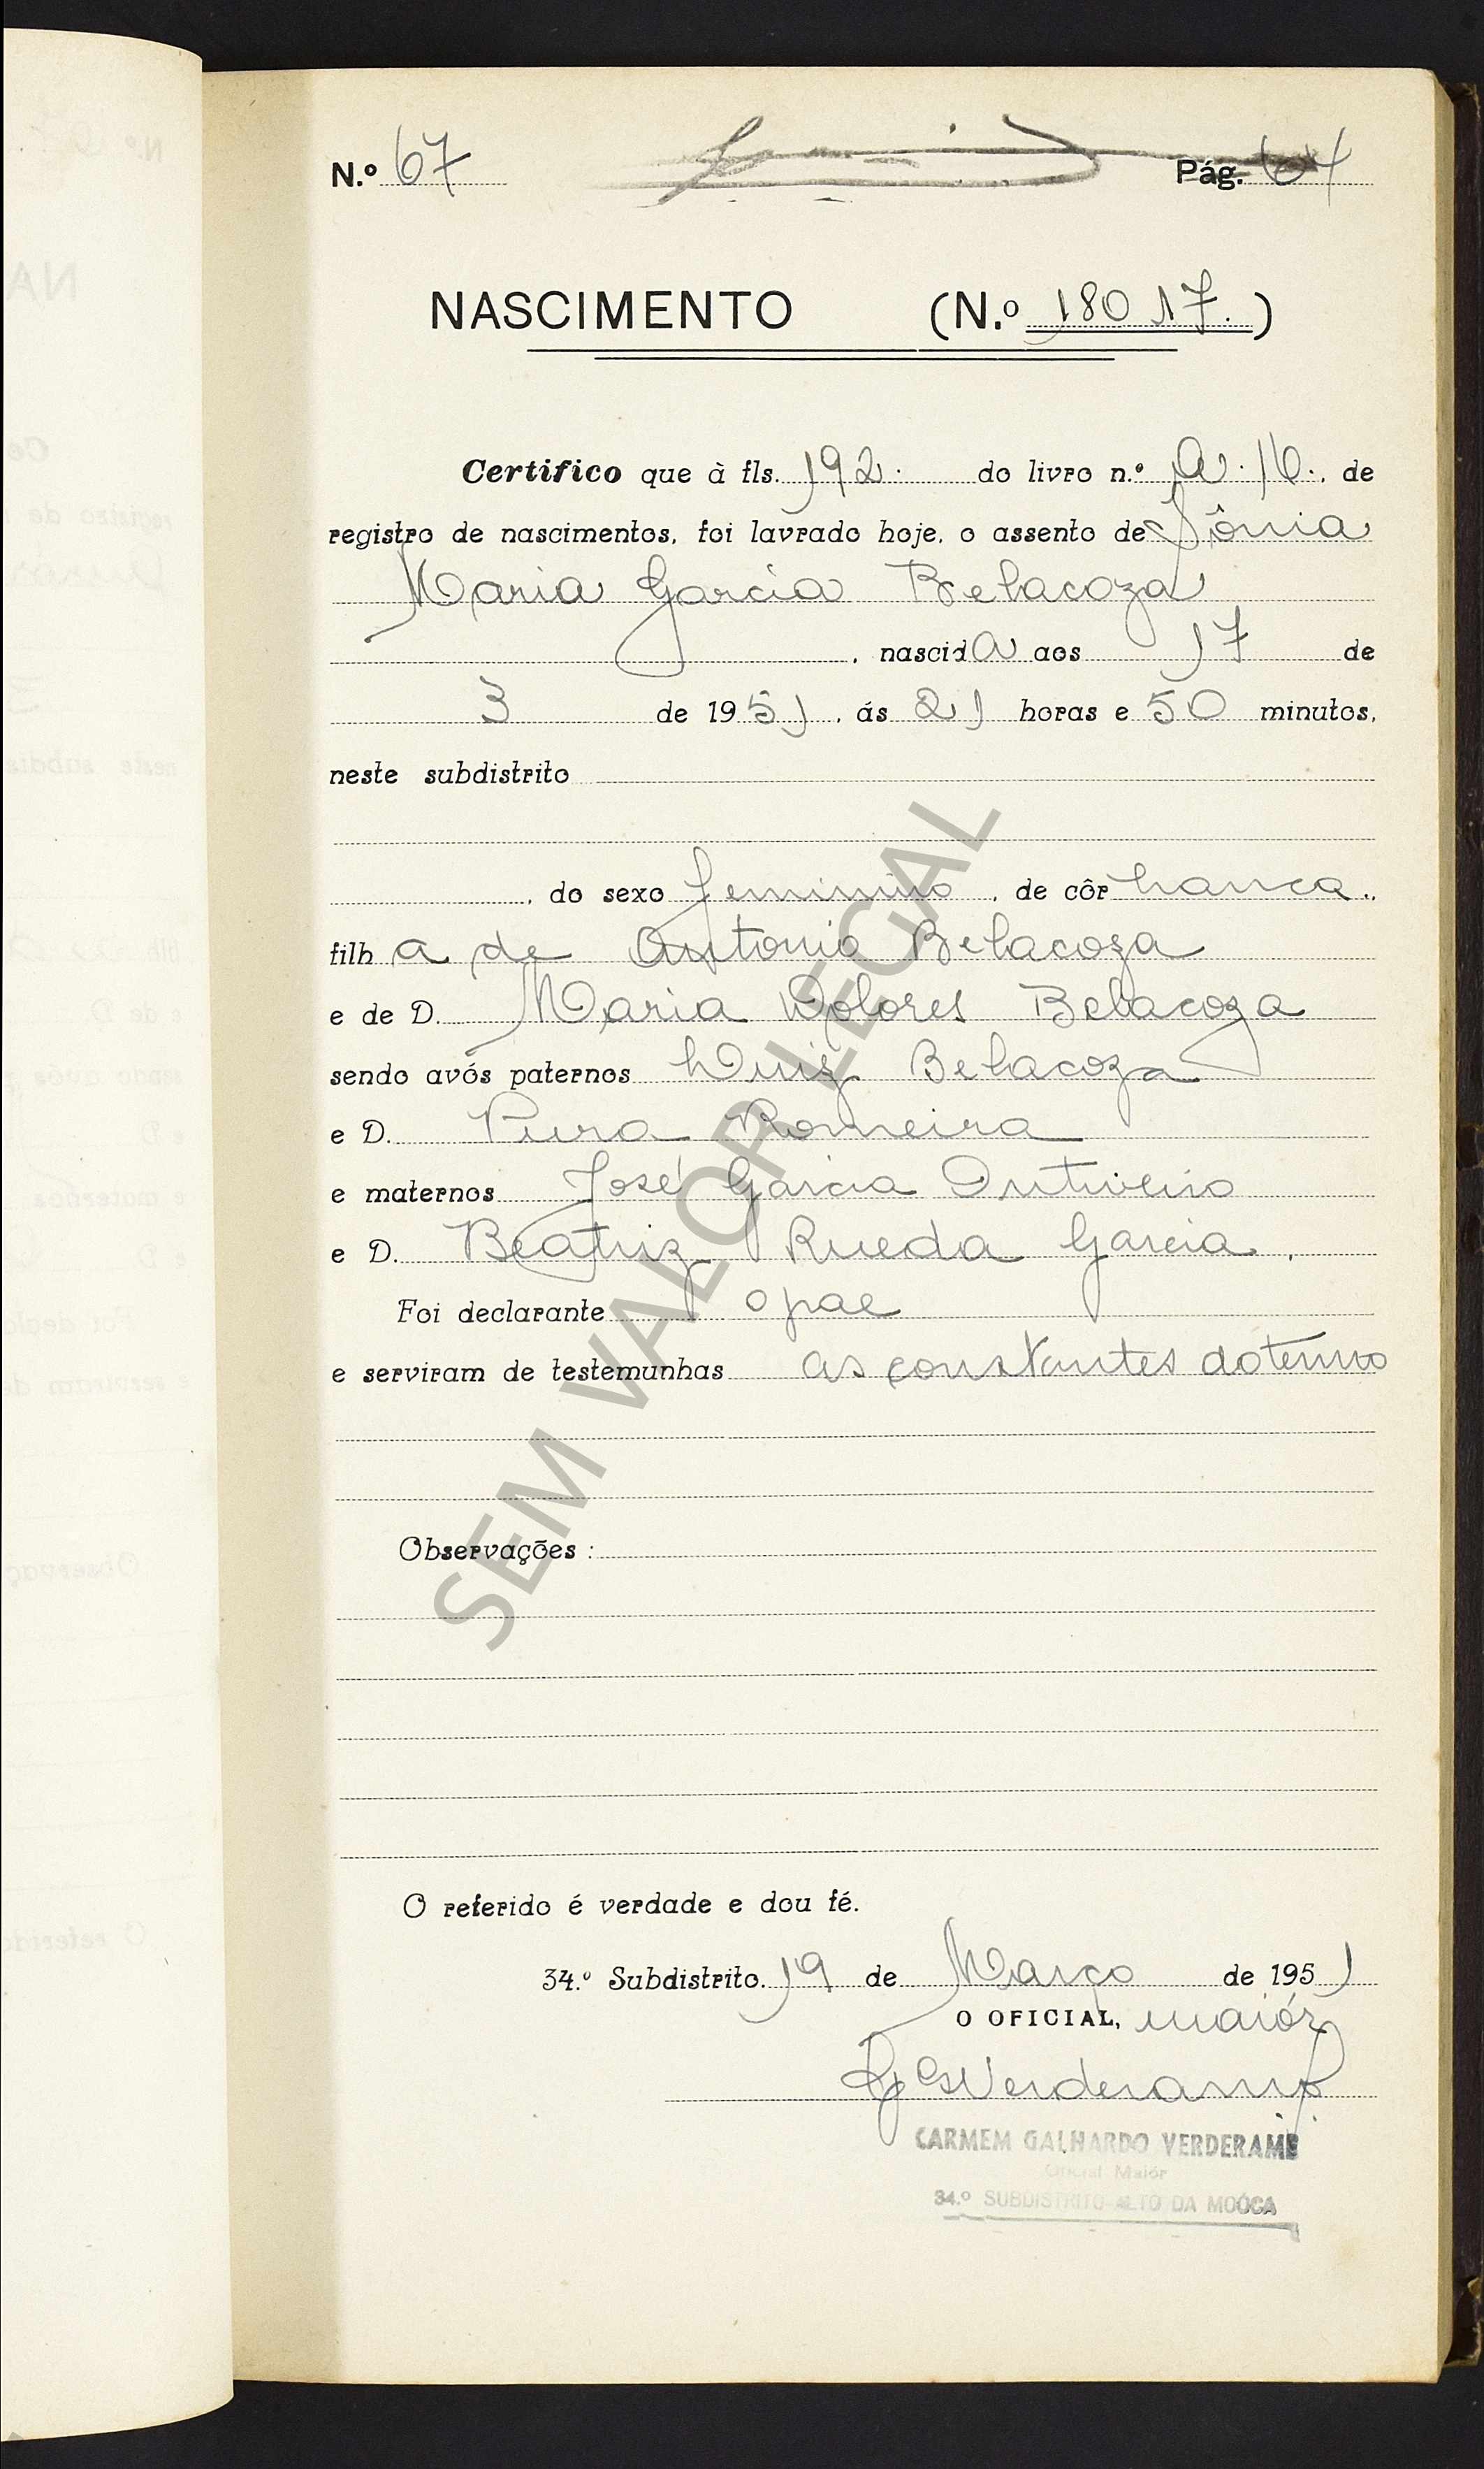 N.º 67 Pág. 64
NASCIMENTO (N.º 18017.)
Certifico que à fls. 192. do livro n.º A.16. de
registro de nascimentos, foi lavrado hoje, o assento de Sônia
Maria Garcia Belacoza
, nascida aos 17 de
3 de 1951, ás 21 horas e 50 minutos,
neste subdistrito
, do sexo feminino, de côr branca.,
filha de Antonio Belacoza
e de D. Maria Dolores Belacoza
sendo avós paternos Luiz Belacoza
e D. Pura Romeira
e maternos José Garcia
e D. Beatriz Rueda Garcia.
Foi declarante o pae
e serviram de testemunhas as constantes do termo
Observações :
O referido é verdade e dou fé.
34.º Subdistrito. 19 de Março de 1951
O OFICIAL, maiór
CGVerderame
CARMEM GALHARDO VERDERAME
Oficial Maiór
34.º SUBDISTRITO-ALTO DA MOÓCA
SEM VALOR LEGAL